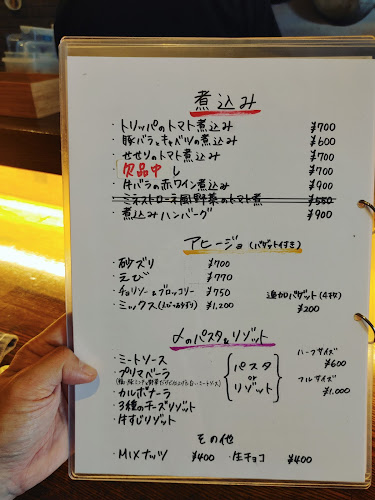 煮込み
・トリッパのトマト煮込み ¥700
・豚バラとキャベツの煮込み ¥600
・せせりのトマト煮込み ¥700
欠品中 し ¥700
・牛バラの赤ワイン煮込み ¥900
・ミネストローネ風野菜のトマト煮 ¥550
・煮込みハンバーグ ¥900
アヒージョ (バゲット付き)
・砂ズリ ¥700
・えび ¥770
・チョリソー&ブロッコリー ¥750
・ミックス(えび・砂ずり) ¥1,200
追加バゲット(4枚)
¥200
〆のパスタ&リゾット
・ミートソース
・プリマベーラ
・カルボナーラ
・3種のチーズリゾット
・牛すじリゾット
パスタ
or
リゾット
ハーフサイズ
¥600
フルサイズ
¥1,000
その他
・MIXナッツ ¥400 ・生チョコ ¥400